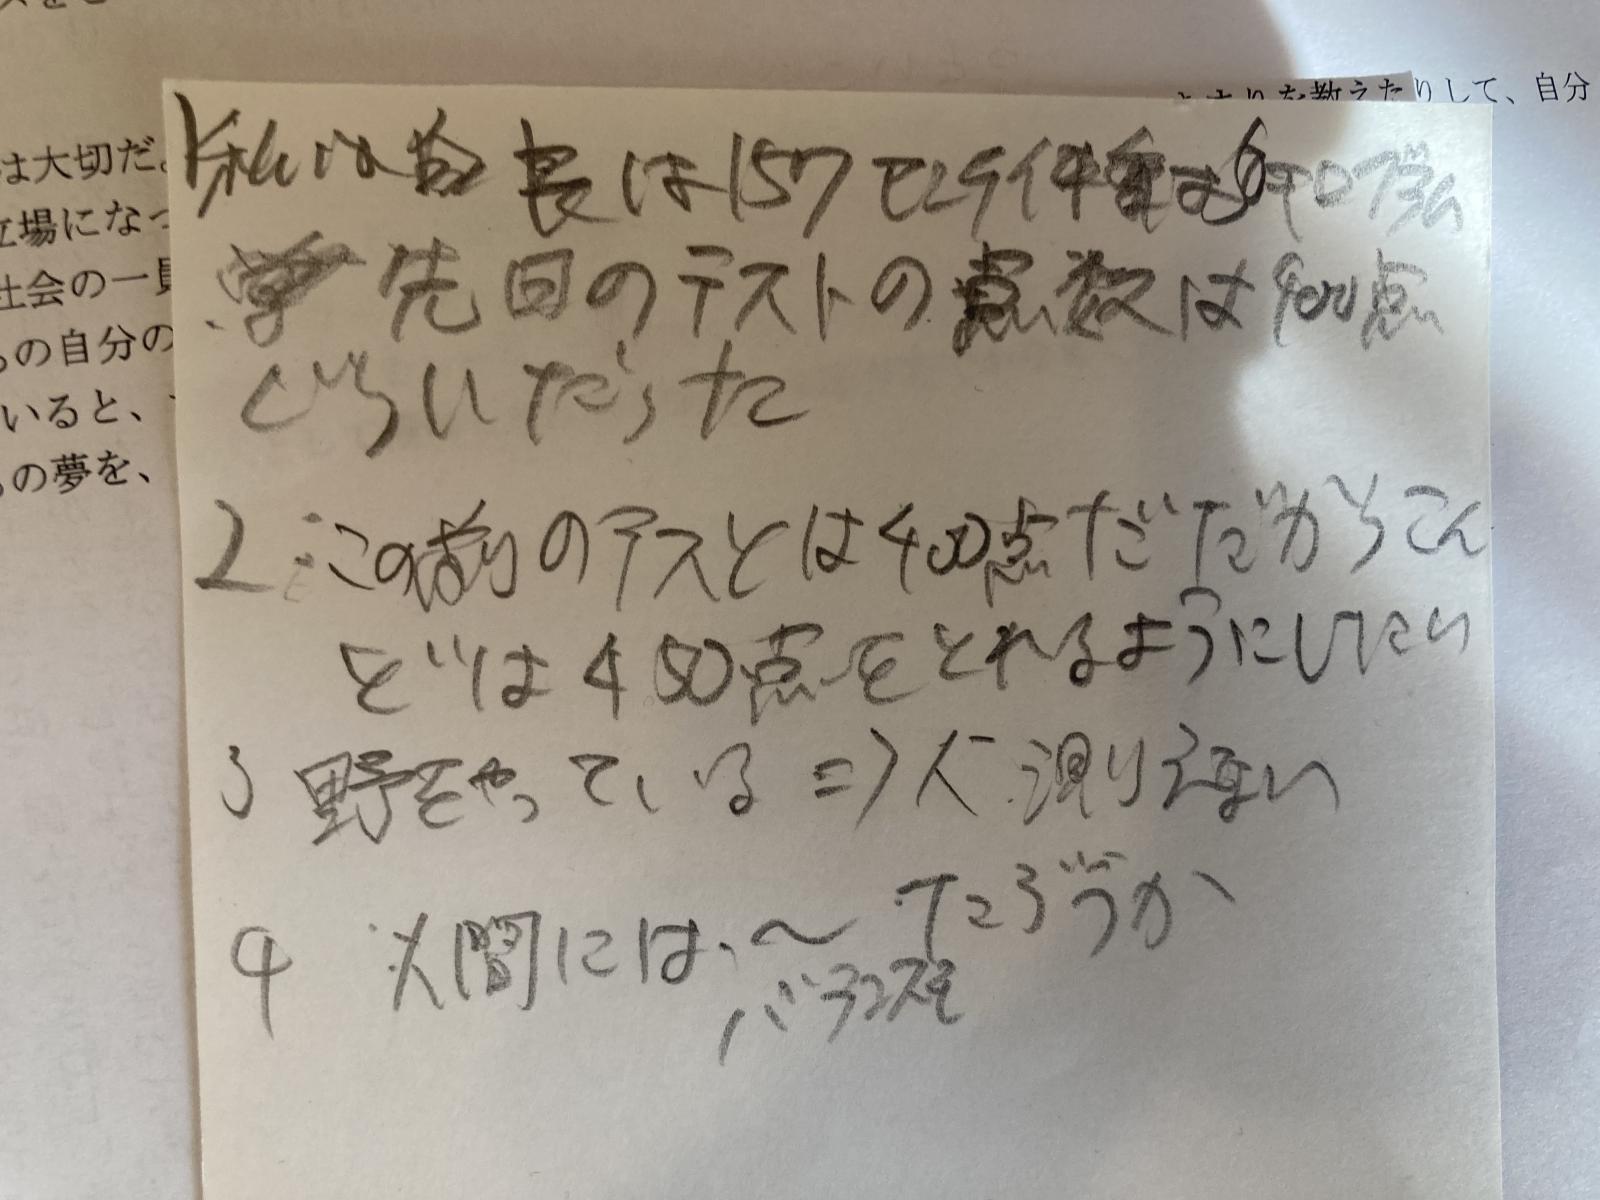 りを教えたりして、自分
は大切だ
立場になっ
社会の一員
の自分の
いると、
の夢を、
1 私は 長は157センチ体重は6キログラム
先日のテストの点数は400点
ぐらいだった
2 この前のテストは400点だ だからこん
どは450点をとれるようにしたい
3 野をやっている ⇒
4 人間には、〜 だろうか
バランスを